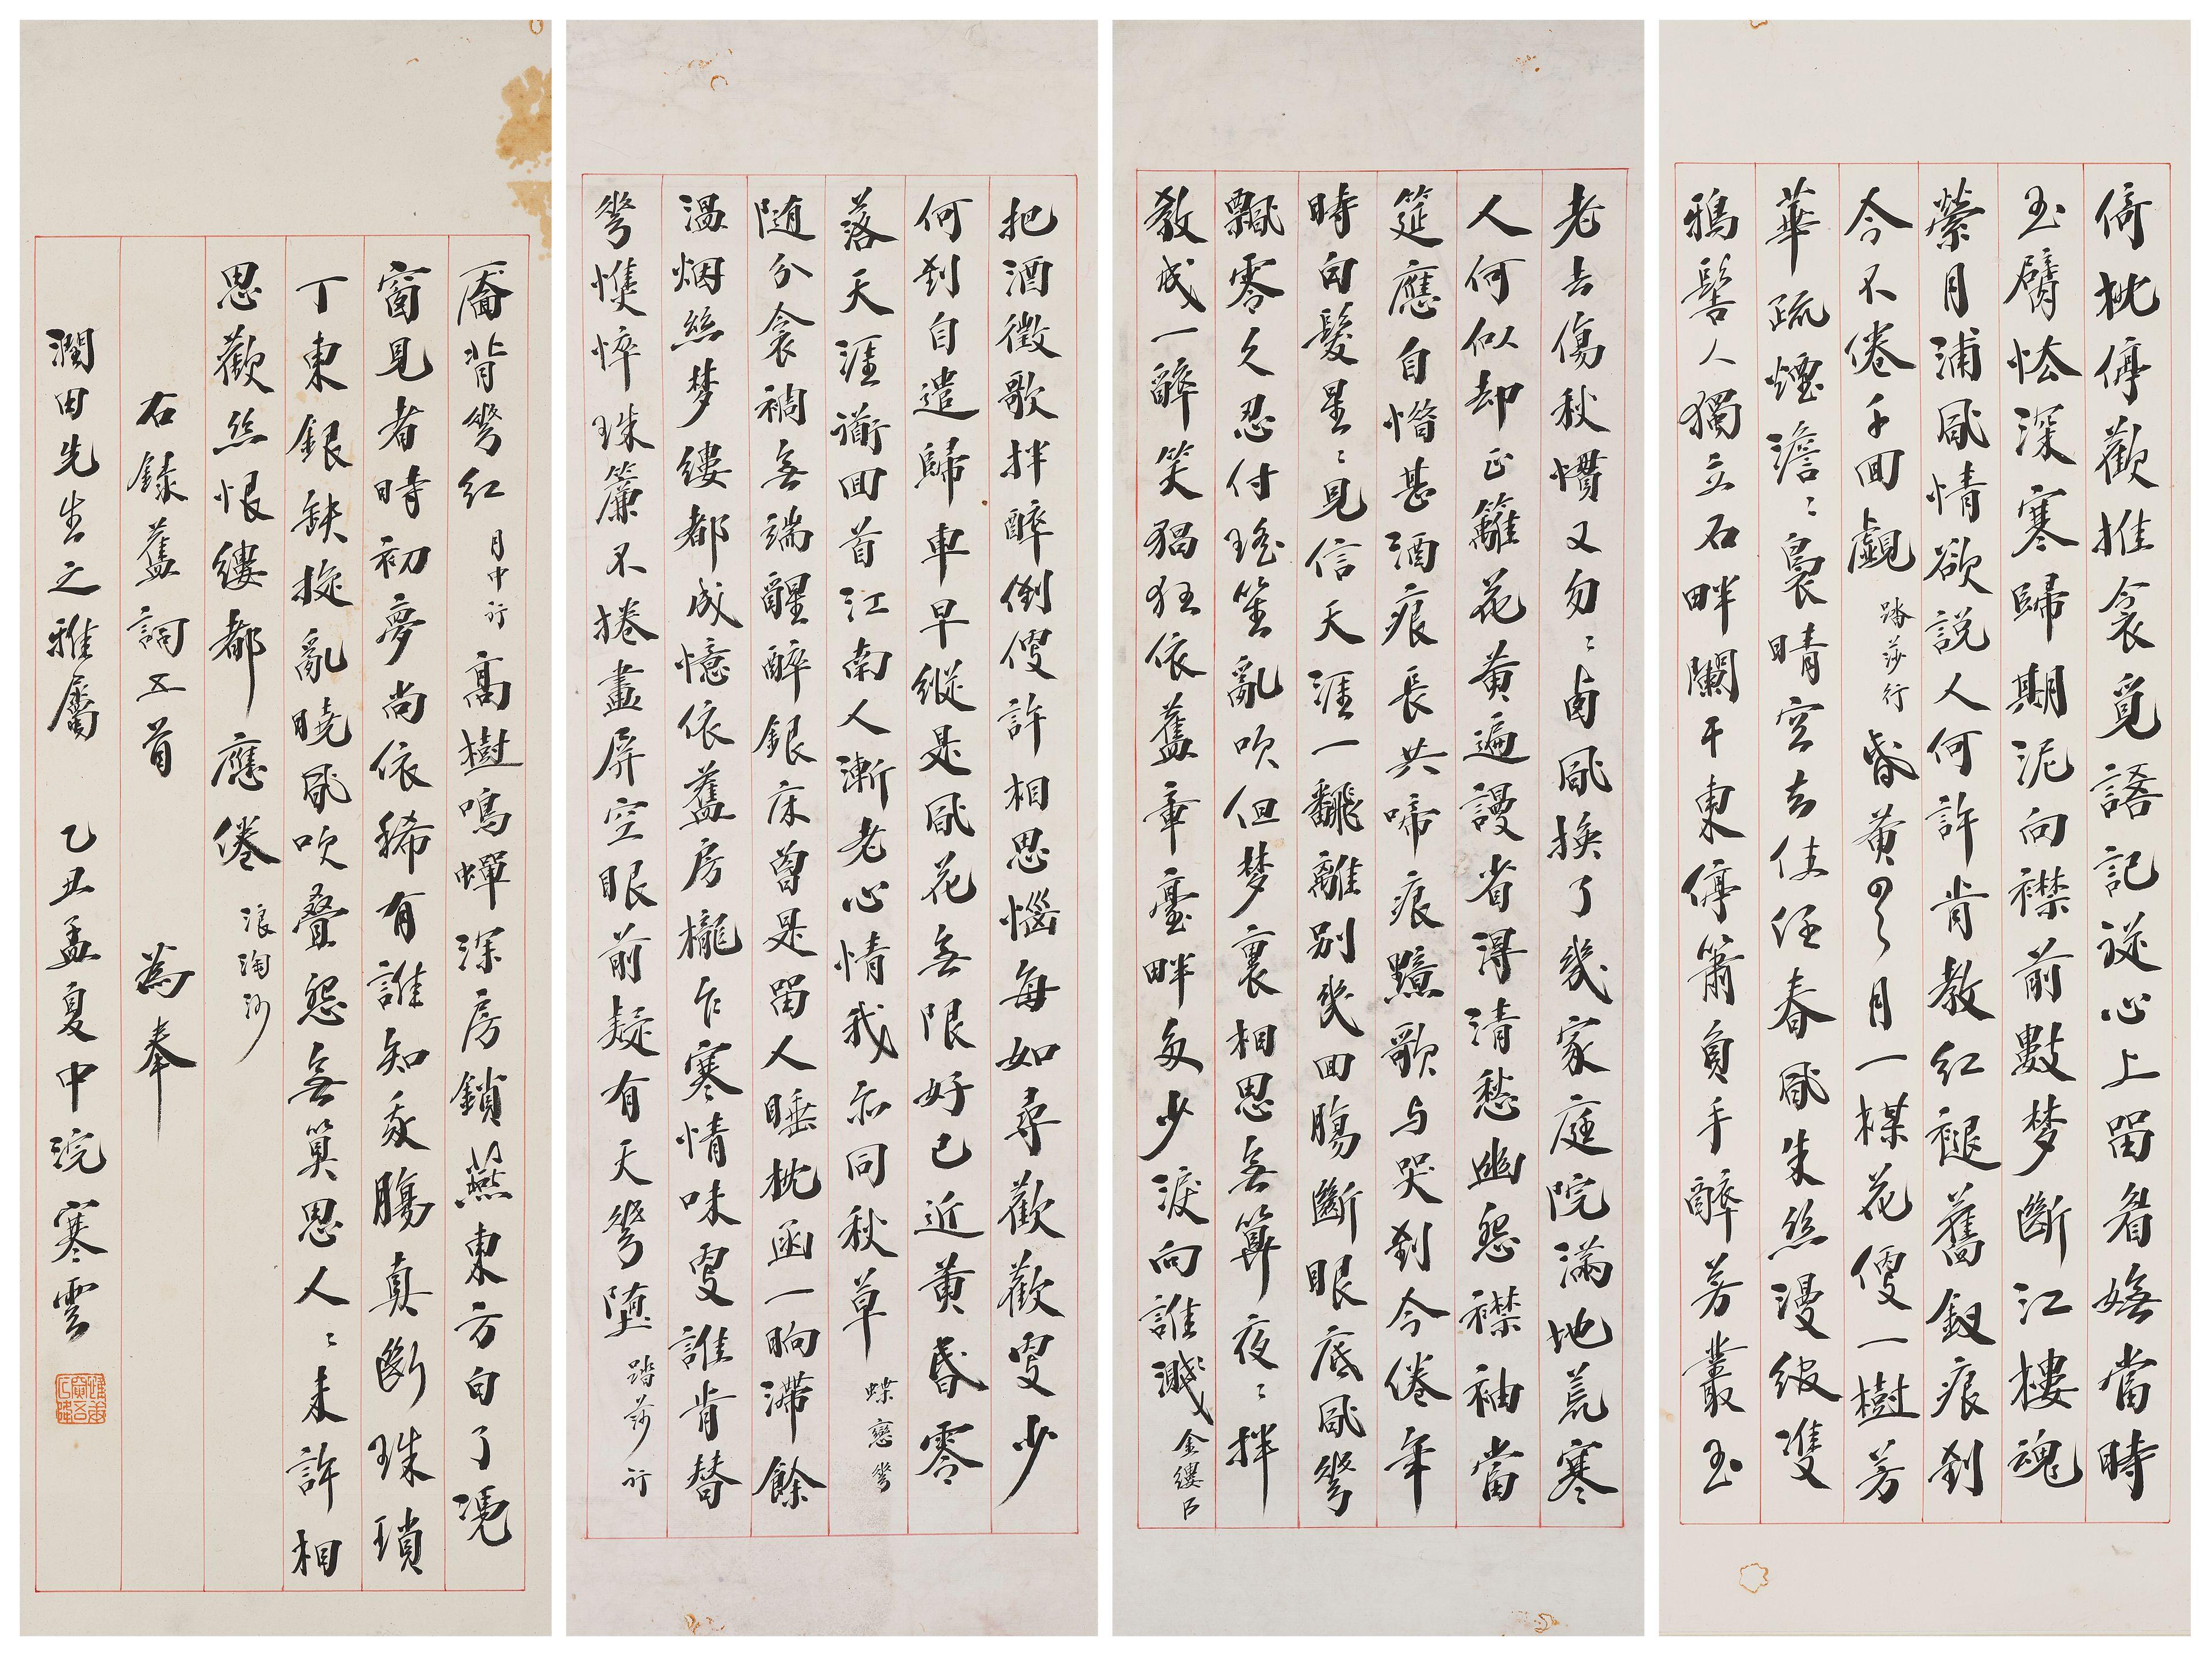 倚枕停歡推衾覓語記從心上留看嫵當時
玉臂怯深寒歸期泥向襟前數梦斷江樓魂
縈月浦風情欲說人何許肯教紅褪舊釵痕到
今不倦千回覷 踏莎行 昏黃映月一楳花便一樹芳
華疏煙澹〻裊晴空去住任春風朱絲漫綰雙
鴉髻人獨立石畔闌干東停簫負手醉芳叢玉
老去傷秋慣又匆〻鹵風換了幾家庭院滿地荒寒
人何似却正籬花黃遍謾省得清愁幽怨襟袖當
筵應自惜甚酒痕長共啼痕黯歌与哭到今倦年
時白髮星〻見信天涯一翻離別幾回腸斷眼底風琴
飄零久忍付瑤笙亂吹但梦裏相思無算夜〻拌
教成一醉笑猖狂依舊章臺畔多少淚向誰濺 金縷曲
把酒徵歌拌醉倒便許相思惱每如尋歡歡更少
何到自遣歸車早縱是風花無限好已近黃昏零
落天涯道回首江南人漸老心情我亦同秋草 蝶戀花
隨分衾裯無端醒醉銀床曾是留人睡枕函一晌滯餘
溫烟絲梦縷都成憶依舊房櫳乍寒情味更誰肯替
花憔悴珠簾不捲畫屏空眼前疑有天花墮 踏莎行
靨背花紅 月中行 高樹鳴蟬深房鎖燕東方白了憑
窗見者時初夢尚依稀有誰知我腸真斷珠瑣
丁東銀缺掟亂曉風吹叠怨無算思人〻未許相
思歡絲恨縷都應倦 浪淘沙
右錄舊詞五首 為奉
潤田先生之雅屬 乙丑孟夏中浣寒雲